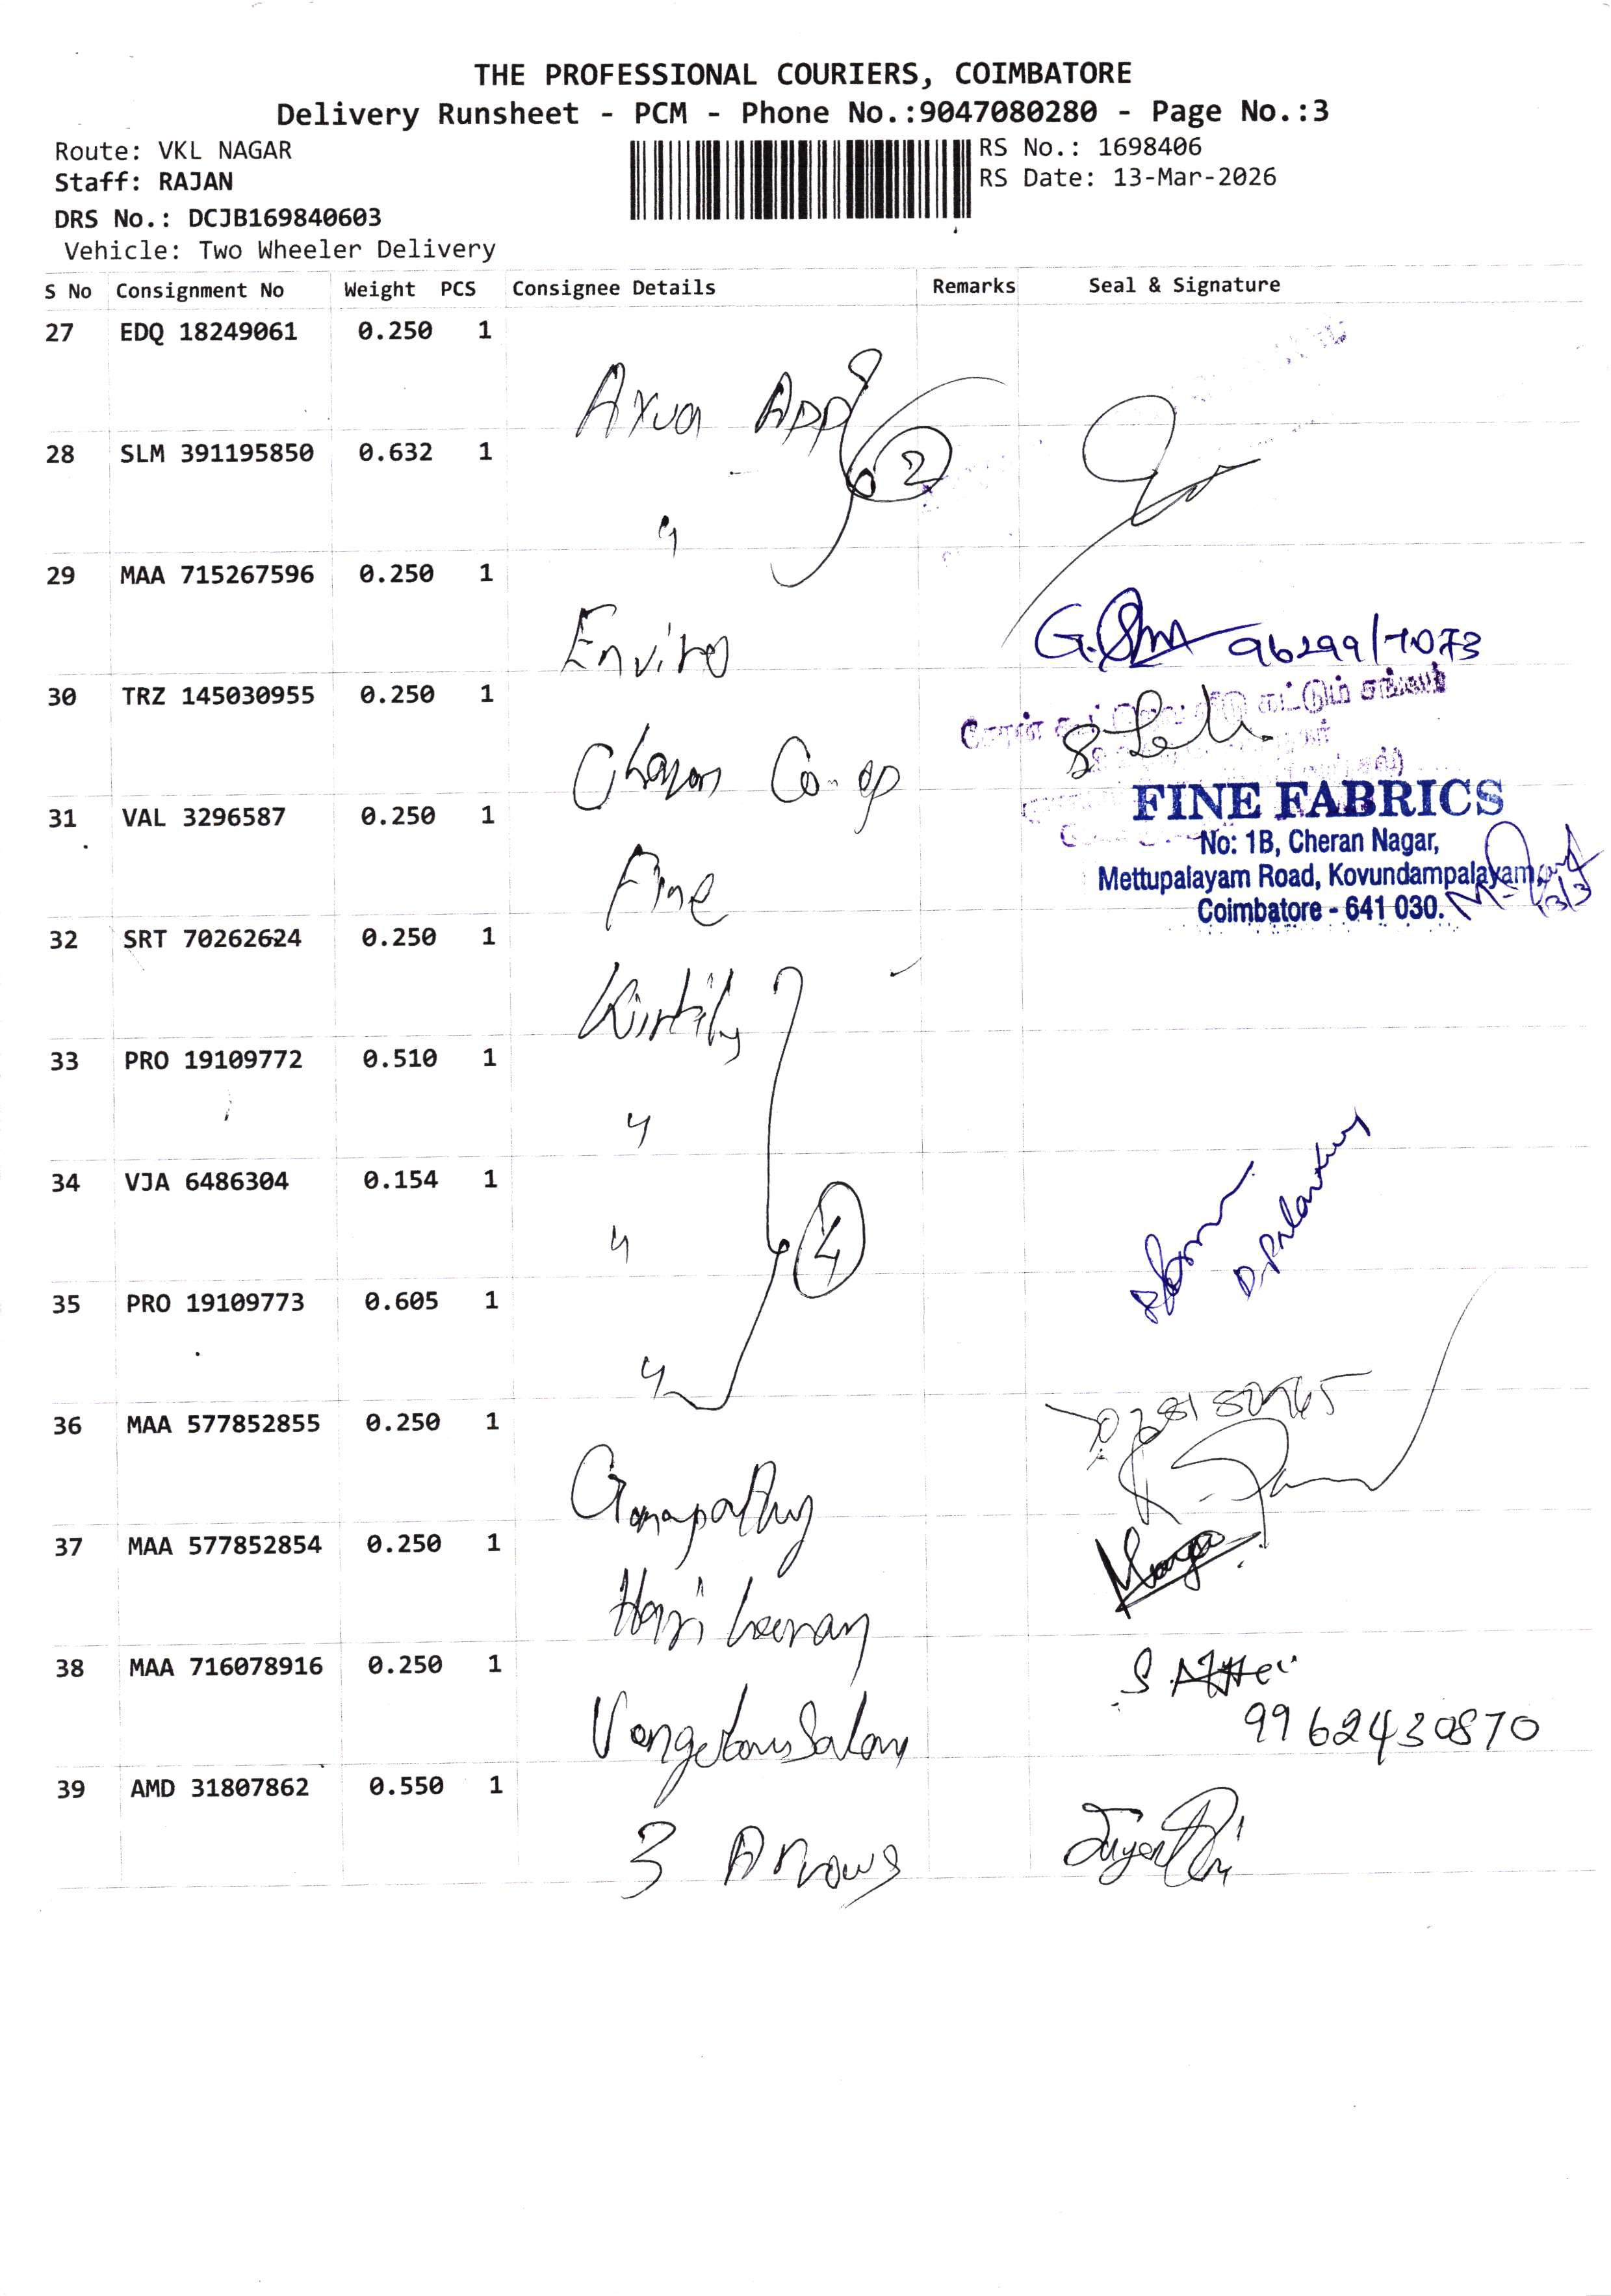 THE PROFESSIONAL COURIERS, COIMBATORE
Delivery Runsheet - PCM - Phone No.:9047080280 - Page No.:3
Route: VKL NAGAR
RS No.: 1698406
Staff: RAJAN
RS Date: 13-Mar-2026
DRS No.: DCJB169840603
Vehicle: Two Wheeler Delivery
S No Consignment No Weight PCS Consignee Details Remarks Seal & Signature
27 EDQ 18249061 0.250 1
28 SLM 391195850 0.632 1
2
29 MAA 715267596 0.250 1
Enviro
30 TRZ 145030955 0.250 1
Co-op
31 VAL 3296587 0.250 1
Fine
FINE FABRICS
No: 1B, Cheran Nagar,
Mettupalayam Road, Kovundampalayam,
Coimbatore - 641 030.
13/3
32 SRT 70262624 0.250 1
33 PRO 19109772 0.510 1
34 VJA 6486304 0.154 1
4
35 PRO 19109773 0.605 1
36 MAA 577852855 0.250 1
Ganapathy
37 MAA 577852854 0.250 1
38 MAA 716078916 0.250 1
9962430870
39 AMD 31807862 0.550 1
3 Arrows